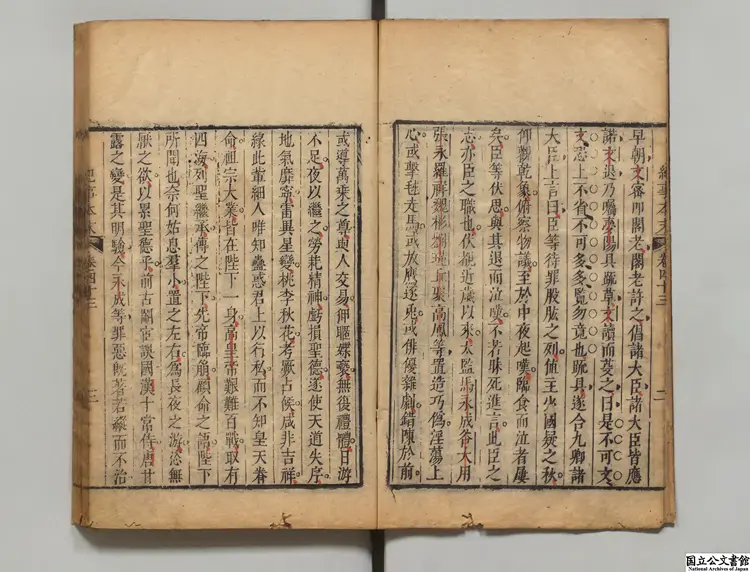 紀事本末 卷四十三 二
早朝文密叩閣老閣老許之倡諸大臣諸大臣皆應
諾文退乃囑夢陽具疏草文讀而芟之曰是不可文
文恐上不省不可多多覽勿竟也疏具遂合九卿諸
大臣上言曰臣等待罪股肱之列值主少國疑之秋
仰觀乾象俯察物議至於中夜起嘆臨食而泣者屢
矣臣等伏思與其退而泣嘆不若昧死進言此臣之
志亦臣之職也伏覩近歲以來太監馬永成谷大用
張永羅祥魏彬劉瑾丘聚高鳳等置造巧偽淫蕩上
心或擊毬走馬或放鷹逐兔或俳優雜劇錯陳於前
或導萬乘之尊與人交易狎暱媟褻無復禮體日游
不足夜以繼之勞耗精神虧損聖德遂使天道失序
地氣靡寧雷異星變桃李秋花考厥占候咸非吉祥
緣此輩細人唯知蠱惑君上以行私而不知皇天眷
命祖宗大業皆在陛下一身高皇帝艱難百戰取有
四海列聖繼承傳之陛下先帝臨崩顧命之語陛下
所聞也奈何姑息羣小置之左右為長夜之游恣無
厭之欲以累聖德乎前古閹宦誤國漢十常侍唐甘
露之變是其明驗今永成等罪惡既著若縱而不治
紀事本末 卷四十三
国立公文書館
National Archives of Japan